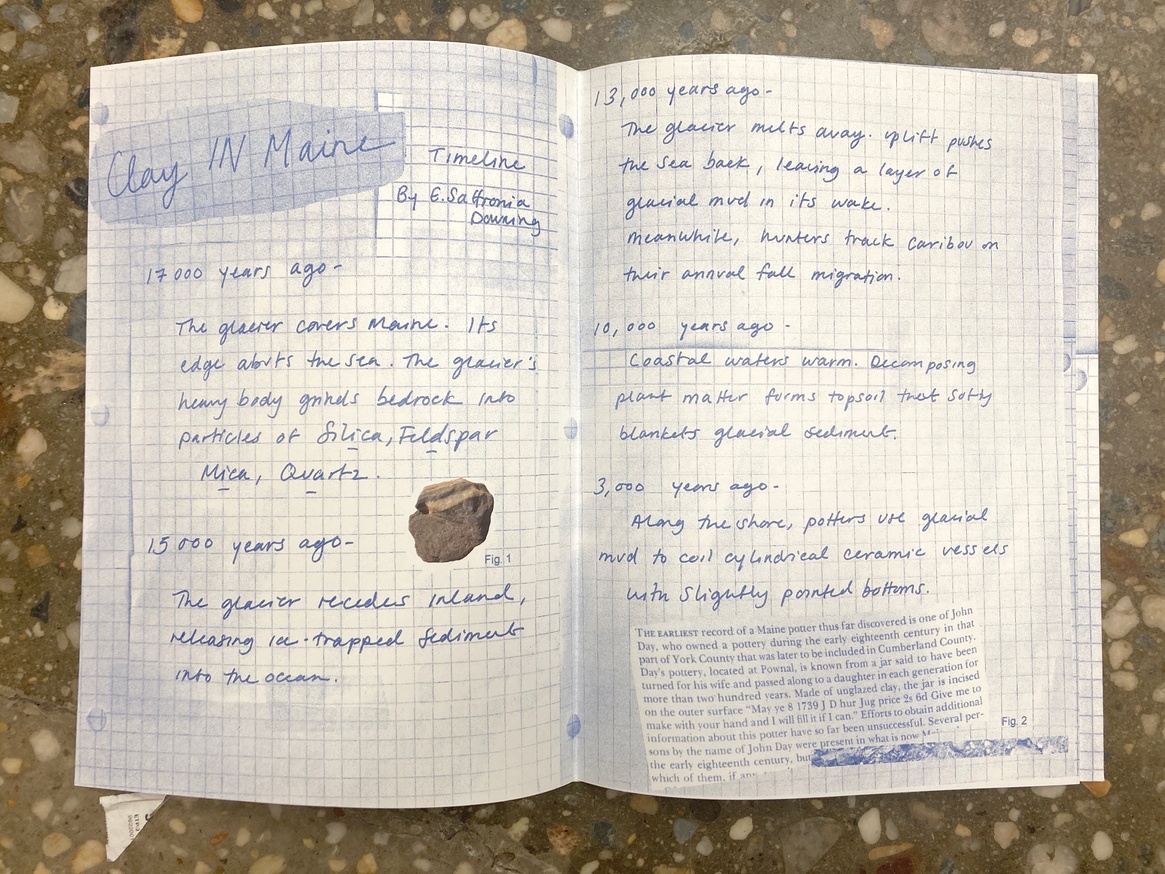 Clay IN Maine
Timeline
By E. Saffronia
Downing
17000 years ago-
The glacier covers Maine. Its
edge abuts the sea. The glacier's
heavy body grinds bedrock into
particles of Silica, Feldspar
Mica, Quartz.
Fig. 1
15000 years ago-
The glacier recedes inland,
releasing ice-trapped sediment
into the ocean.
13,000 years ago-
The glacier melts away. uplift pushes
the sea back, leaving a layer of
glacial mud in its wake.
meanwhile, hunters track caribou on
their annual fall migration.
10,000 years ago-
Coastal waters warm. Decomposing
plant matter forms topsoil that softly
blankets glacial sediment.
3,000 years ago-
Along the shore, potters use glacial
mud to coil cylindrical ceramic vessels
with slightly pointed bottoms.
THE EARLIEST record of a Maine potter thus far discovered is one of John
Day, who owned a pottery during the early eighteenth century in that
part of York County that was later to be included in Cumberland County.
Day's pottery, located at Pownal, is known from a jar said to have been
turned for his wife and passed along to a daughter in each generation for
more than two hundred years. Made of unglazed clay, the jar is incised
on the outer surface "May ye 8 1739 J D hur Jug price 2s 6d Give me to
make with your hand and I will fill it if I can." Efforts to obtain additional
information about this potter have so far been unsuccessful. Several per-
sons by the name of John Day were present in what is now
the early eighteenth century, but
which of them, if any
Fig. 2